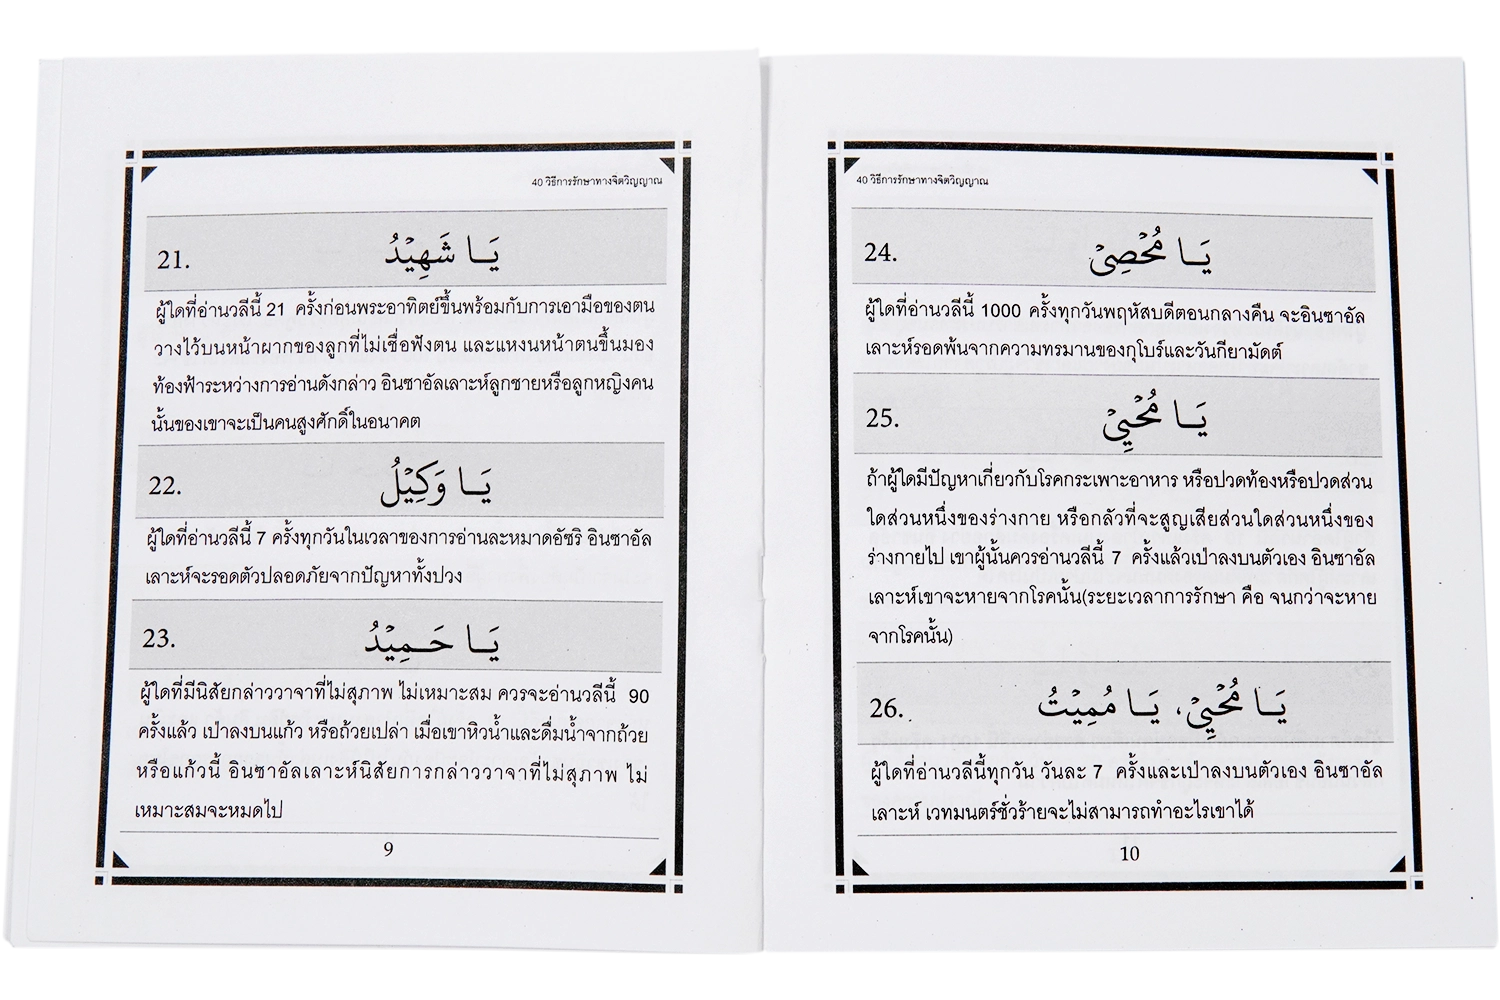 40 วิธีการรักษาทางจิตวิญญาณ
21. يَـا شَهِيْدُ
ผู้ใดที่อ่านวลีนี้ 21 ครั้งก่อนพระอาทิตย์ขึ้นพร้อมกับการเอามือของตน
วางไว้บนหน้าผากของลูกที่ไม่เชื่อฟังตน และแหงนหน้าตนขึ้นมอง
ท้องฟ้าระหว่างการอ่านดังกล่าว อินชาอัลเลาะห์ลูกชายหรือลูกหญิงคน
นั้นของเขาจะเป็นคนสูงศักดิ์ในอนาคต
22. يَـا وَكِيْلُ
ผู้ใดที่อ่านวลีนี้ 7 ครั้งทุกวันในเวลาของการอ่านละหมาดอัซริ อินซาอัล
เลาะห์จะรอดตัวปลอดภัยจากปัญหาทั้งปวง
23. يَـا حَـمِيْدُ
ผู้ใดที่มีนิสัยกล่าววาจาที่ไม่สุภาพ ไม่เหมาะสม ควรจะอ่านวลีนี้ 90
ครั้งแล้ว เป่าลงบนแก้ว หรือถ้วยเปล่า เมื่อเขาหิวน้ำและดื่มน้ำจากถ้วย
หรือแก้วนี้ อินซาอัลเลาะห์นิสัยการกล่าววาจาที่ไม่สุภาพ ไม่
เหมาะสมจะหมดไป
9
40 วิธีการรักษาทางจิตวิญญาณ
24. يَـا مُحْصِيْ
ผู้ใดที่อ่านวลีนี้ 1000 ครั้งทุกวันพฤหัสบดีตอนกลางคืน จะอินซาอัล
เลาะห์รอดพ้นจากความทรมานของกุโบร์และวันกียามัดต์
25. يَـا مُحْيِيْ
ถ้าผู้ใดมีปัญหาเกี่ยวกับโรคกระเพาะอาหาร หรือปวดท้องหรือปวดส่วน
ใดส่วนหนึ่งของร่างกาย หรือกลัวที่จะสูญเสียส่วนใดส่วนหนึ่งของ
ร่างกายไป เขาผู้นั้นควรอ่านวลีนี้ 7 ครั้งแล้วเป่าลงบนตัวเอง อินซาอัล
เลาะห์เขาจะหายจากโรคนั้น(ระยะเวลาการรักษา คือ จนกว่าจะหาย
จากโรคนั้น)
26. يَـا مُحْيِيْ، يَـا مُمِيْتُ
ผู้ใดที่อ่านวลีนี้ทุกวัน วันละ 7 ครั้งและเป่าลงบนตัวเอง อินซาอัล
เลาะห์ เวทมนตร์ชั่วร้ายจะไม่สามารถทำอะไรเขาได้
10